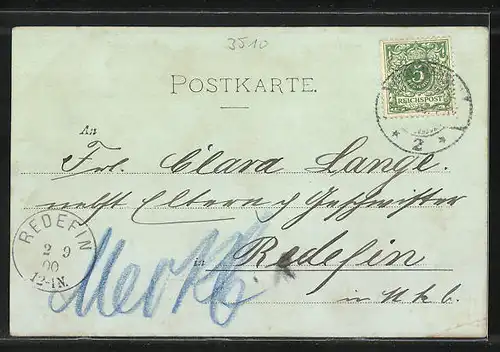 3510
POSTKARTE.
5
REICHSPOST
* 2 *
An
Frl. Clara Lange.
nebst Eltern & Geschwister
in Redefin
in Mkb.
REDEFIN
2 9
00
12-1N.